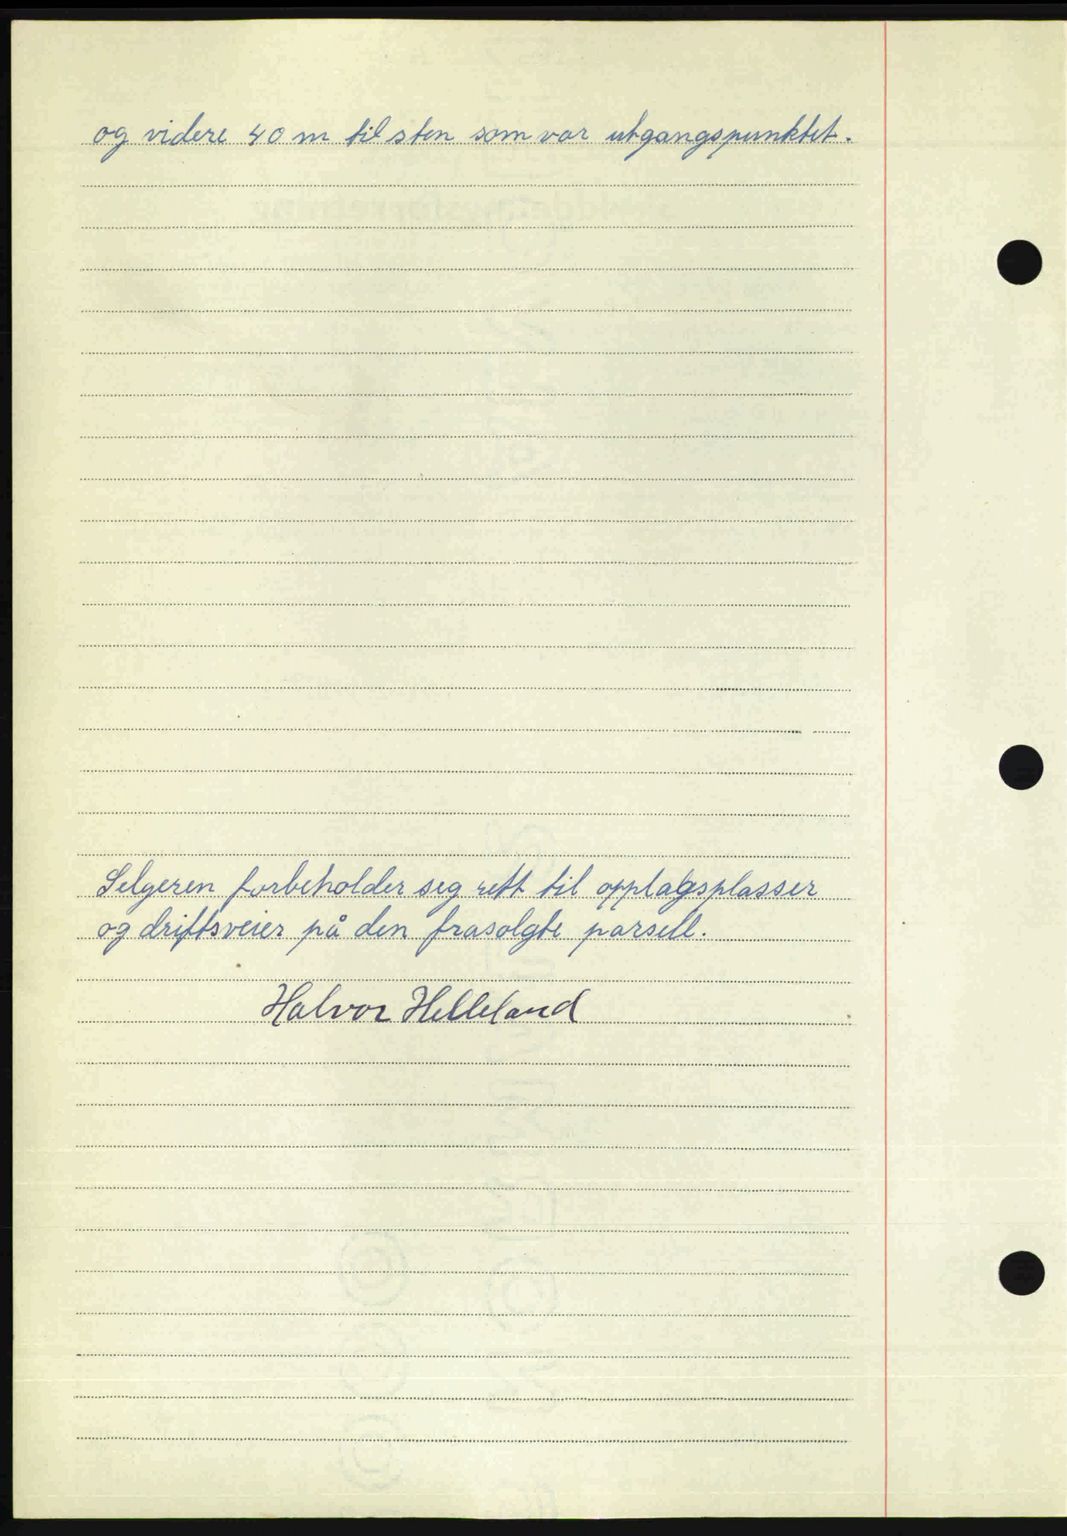 og videre 40 m til sten som var utgangspunktet.
Selgeren forbeholder seg rett til opplagsplasser
og driftsveier på den frasolgte parsell.
Halvor Helleland